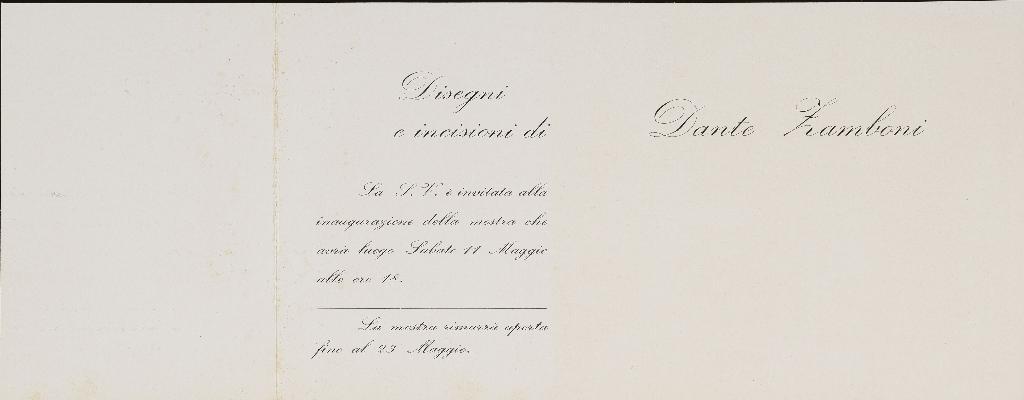 Disegni
e incisioni di
Dante Zamboni
La S. V. è invitata alla
inaugurazione della mostra che
avrà luogo Sabato 11 Maggio
alle ore 18.
La mostra rimarrà aperta
fino al 23 Maggio.